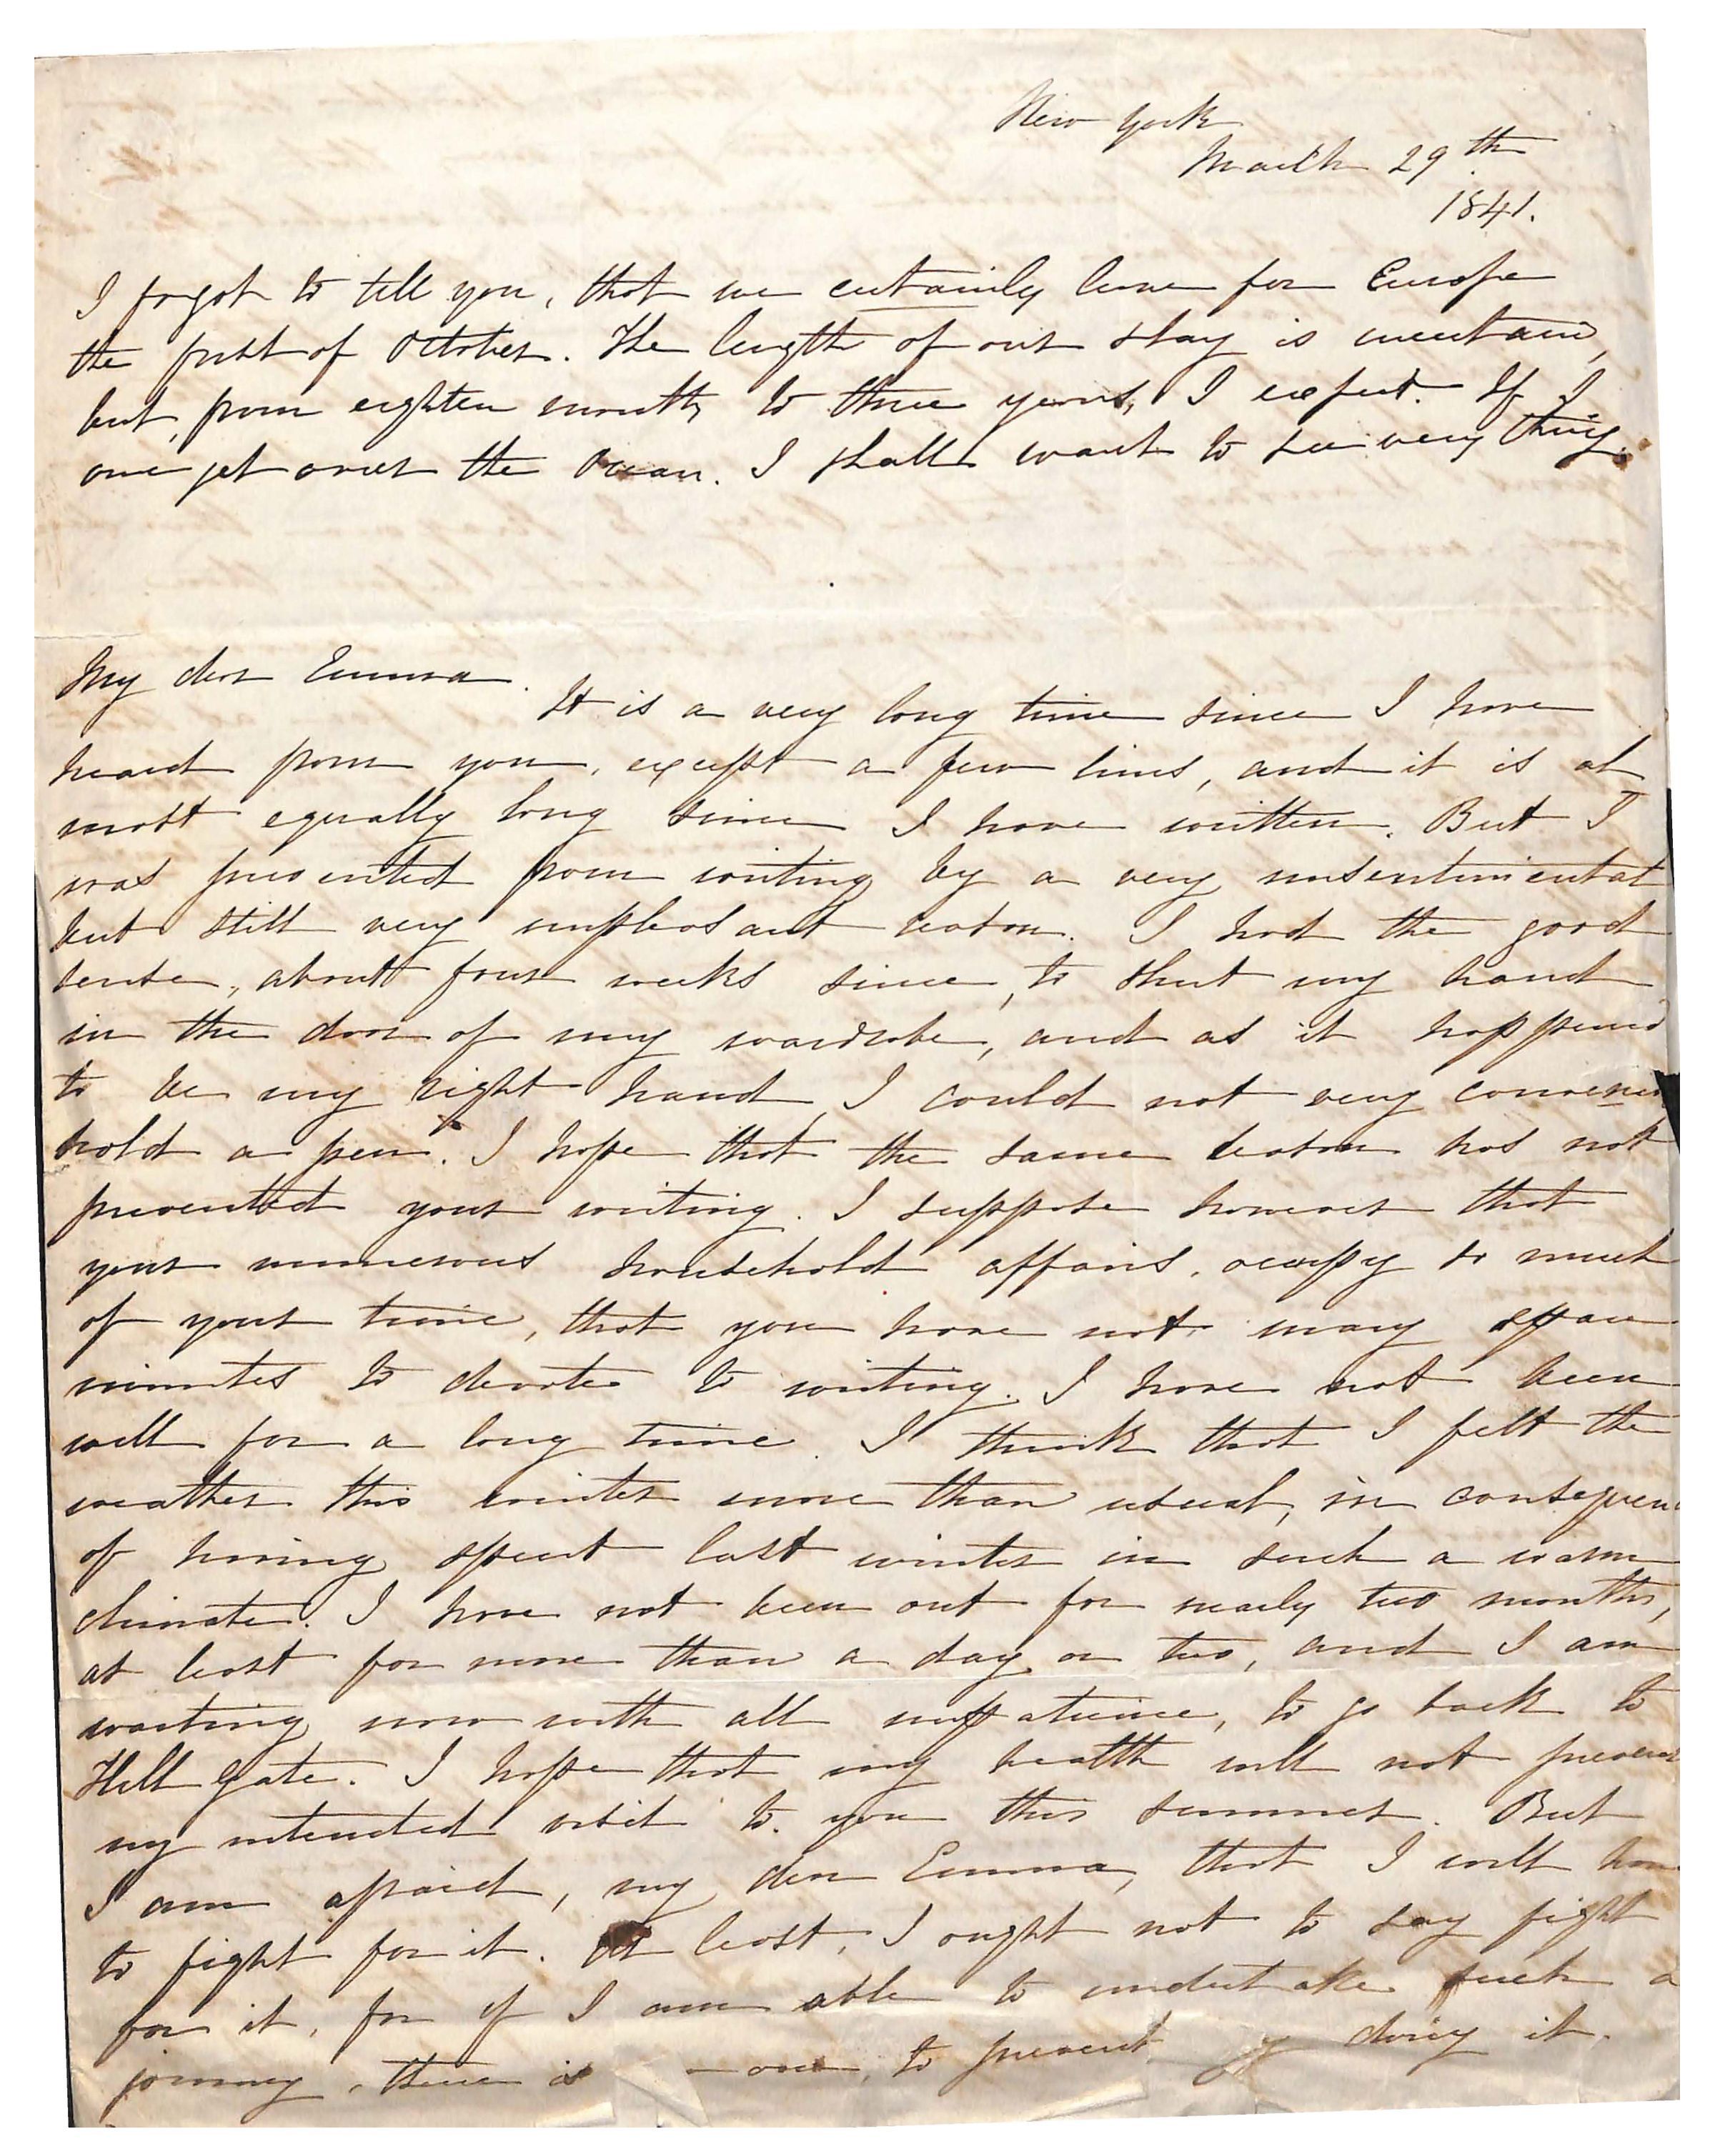 New York
March 29th
1841.
I forgot to tell you, that we certainly leave for Europe
the first of October. The length of our stay is uncertain,
but, from eighteen months to three years, I expect. If I
once get over the Ocean. I shall want to see every thing.
My dear Emma.
It is a very long time since I have
heard from you, except a few lines, and it is al
most equally long since I have written. But I
was prevented from writing by a very unsentimental
but still very unpleasant reason. I had the good
sense, about four weeks since, to shut my hand
in the door of my wardrobe, and as it happened
to be my right hand, I could not very conveni
hold a pen. I hope that the same reason has not
prevented your writing. I suppose however that
your numerous household affairs, occupy so much
of your time, that you have not many spare
minutes to devote to writing. I have not been
well for a long time. I think that I felt the
weather this winter more than usual, in consequen
of having spent last winter in such a warm
climate. I have not been out for nearly two months,
at least for more than a day or two, and I am
waiting now with all impatience, to go back to
Hell Gate. I hope that my health will not prevent
my intended visit to you this summer. But
I am afraid, my dear Emma, that I will have
to fight for it. At least, I ought not to say fight
for it, for if I am able to undertake such a
journey, there is one, to prevent my doing it.